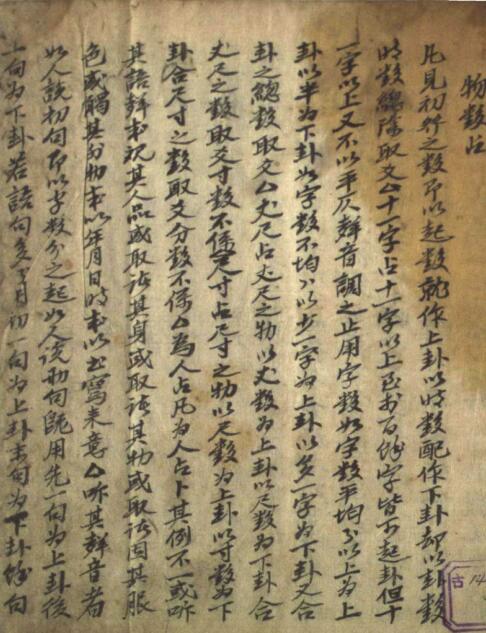 物数占
凡見初物之数即以起数就作上卦以時数配作下卦却以卦数
時数總除取爻△十一字占十一字以上至于百餘字皆可起卦但十
一字以上又不以平仄聲音調之止用字数如字数平均即以上為上
卦以半為下卦如字数不均即以少一字為上卦以多一字為下卦又合
卦之總数取爻△丈尺占丈尺之物以丈数為上卦以尺数為下卦合
丈尺之数取爻寸数不係△尺寸占尺寸之物以尺数為上卦以寸数為下
卦合尺寸之数取爻分数不係△為人占凡為人占卜其例不一或听
其語或观其人品或取诸其身或取诸其物或取诸因其服
色或觸其外物或以年月日時或以书寫来意△听其聲音者
如人説初句即以字数分之起如人说两句既用先一句為上卦後
一句為下卦若語句多只用初一句為上卦末句為下卦餘句
古14